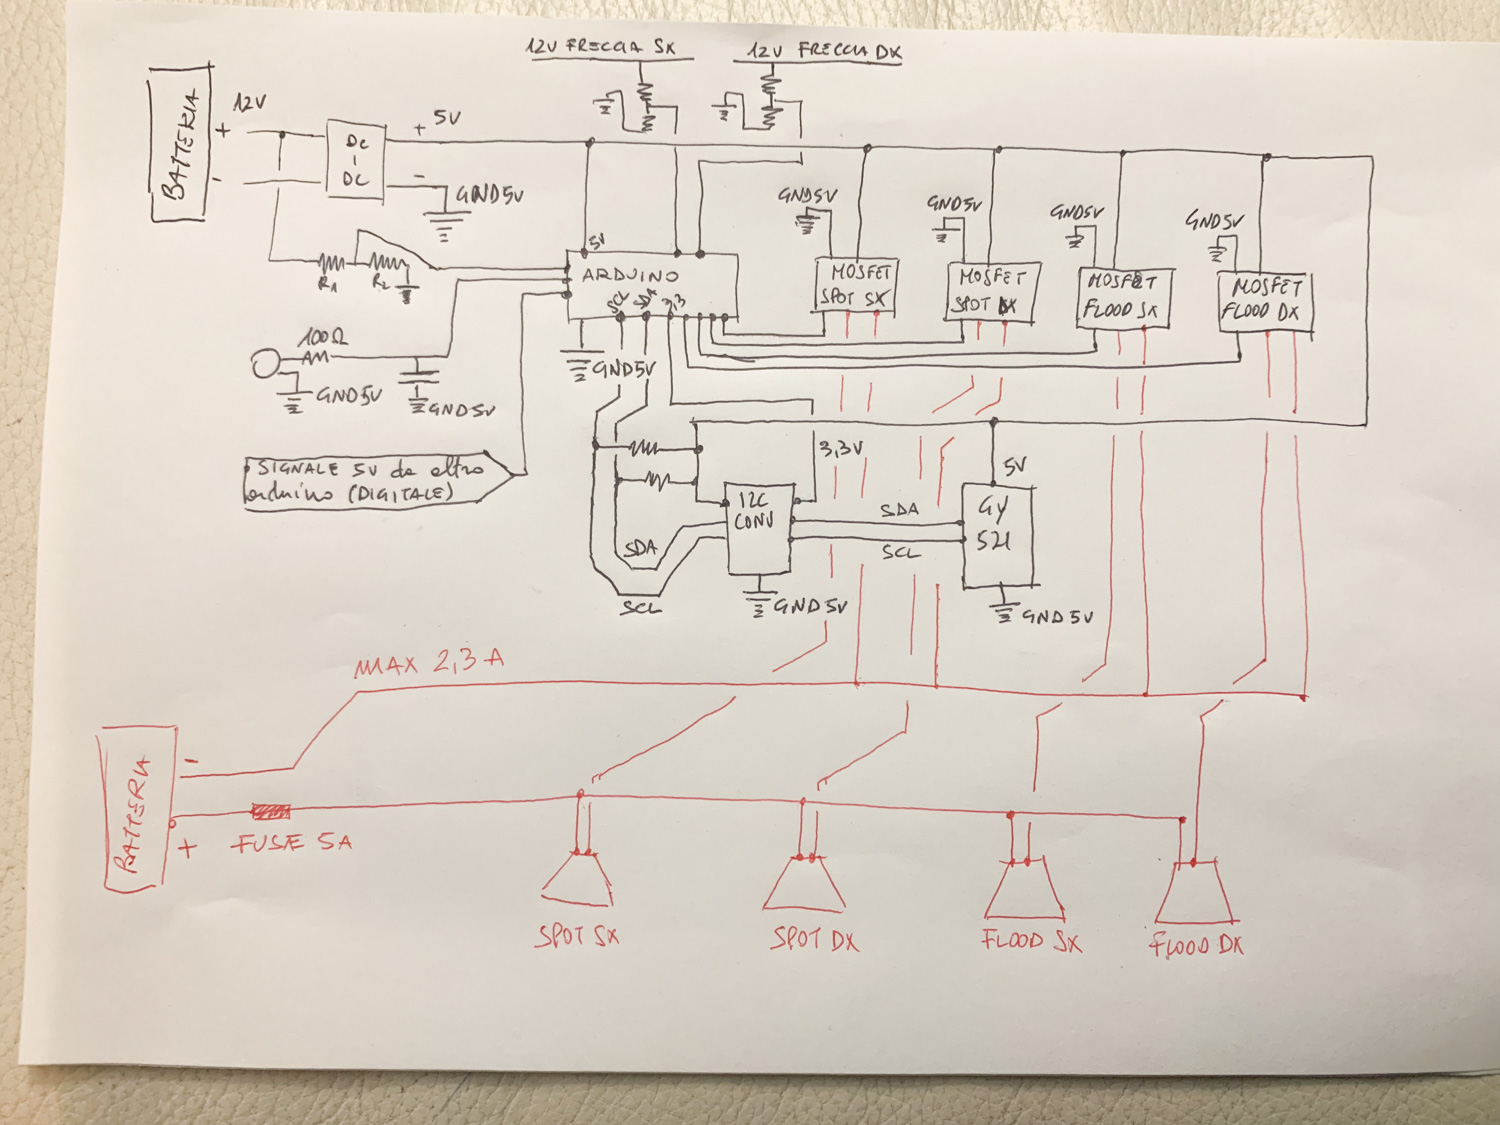 12V FRECCIA SX
12V FRECCIA DX
BATTERIA
12V
+
-
DC
-
DC
+ 5V
-
GND5V
R1
R2
5V
ARDUINO
SCL
SDA
3,3
GND5V
MOSFET
SPOT SX
GND5V
MOSFET
SPOT DX
GND5V
MOSFET
FLOOD SX
GND5V
MOSFET
FLOOD DX
100Ω
GND5V
GND5V
GND5V
SIGNALE 5V da altro
arduino (DIGITALE)
3,3V
5V
I2C
CONV
SDA
SCL
GY
521
SDA
SCL
GND5V
GND5V
MAX 2,3A
BATTERIA
-
+
FUSE 5A
SPOT SX
SPOT DX
FLOOD SX
FLOOD DX